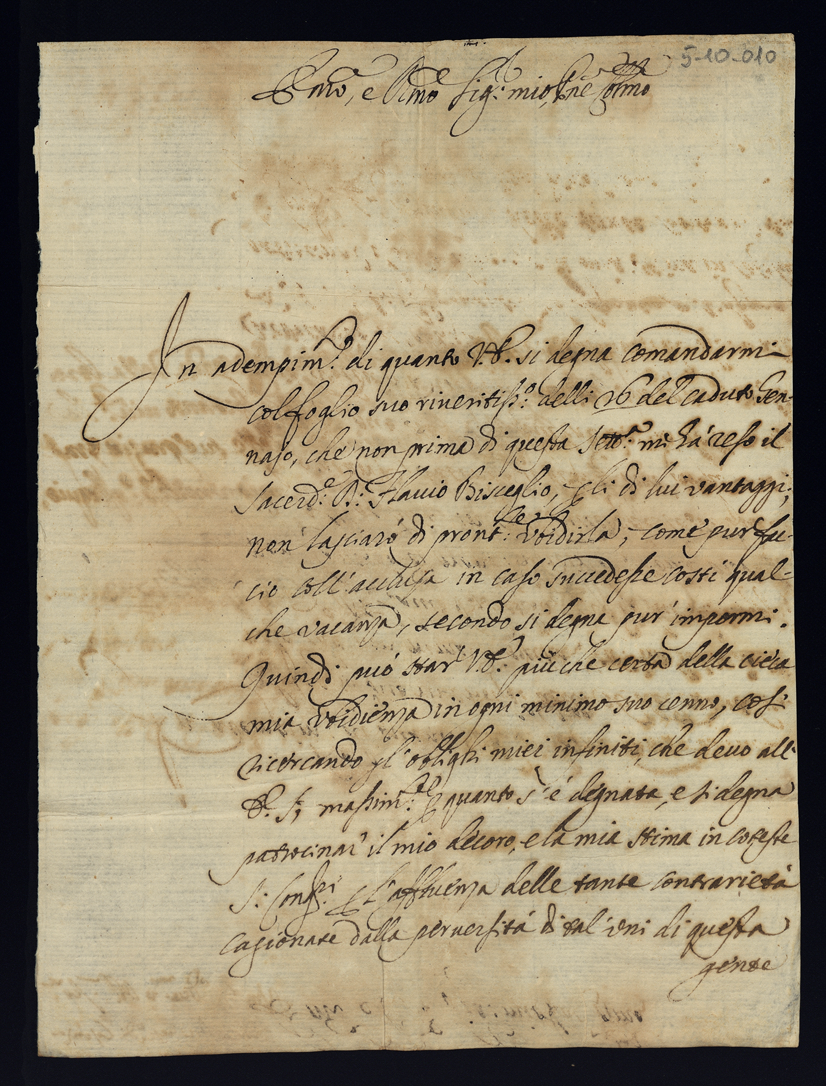 5-10-010
Em̃o, e R̃mo Sig.r mio, P̃ne Col̃mo
In adempim.to di quanto V.E. si degna comandarmi
col foglio suo riveritiss.o delli 26 del caduto Gen-
naio, che non prima di questa Sett.a mi hà reso il
Sacerd.e D. Flavio Bisceglio, p li di lui vantaggi,
non lasciarò di pront.te vbidirla, come pur fac-
cio coll'acclusa in caso succedesse costì qual-
che vacanza, secondo si degna pur' impormi.
Quindi può star' V.E. più che certa della cieca
mia vbidienza in ogni minimo suo cenno, così
ricercando gl'obblighi miei infiniti, che devo all'
E. S., massim.te p quanto s'è degnata, e si degna
patrocinar' il mio decoro, e la mia stima in coteste
S. Cong.ni p l'affluenza delle tante contrarietà
cagionate dalla perversità di tal' vni di questa
gente